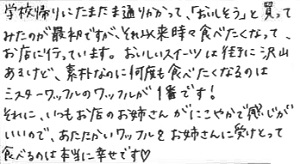 学校帰りにたまたま通りかかって、「おいしそう」と買って
みたのが最初ですが、それ以来時々食べたくなって、
お店に行っています。おいしいスイーツは他に沢山
あるけど、素朴なのに何度も食べたくなるのは
ミスターワッフルのワッフルが1番です!
それに、いつもお店のお姉さんがにこやかで感じが
いいので、あたたかいワッフルをお姉さんに受けとって
食べるのは本当に幸せです♡